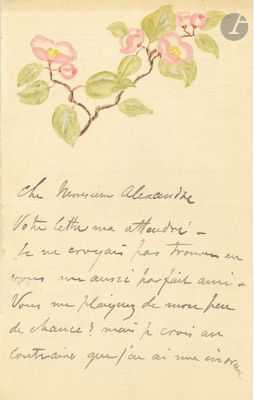 Cher Monsieur Alexandre
Votre lettre m'a attendrie –
Je ne croyais pas trouver en
vous un aussi parfait ami –
Vous me plaignez de mon peu
de chance? mais je crois au
contraire que j'en ai une énorme